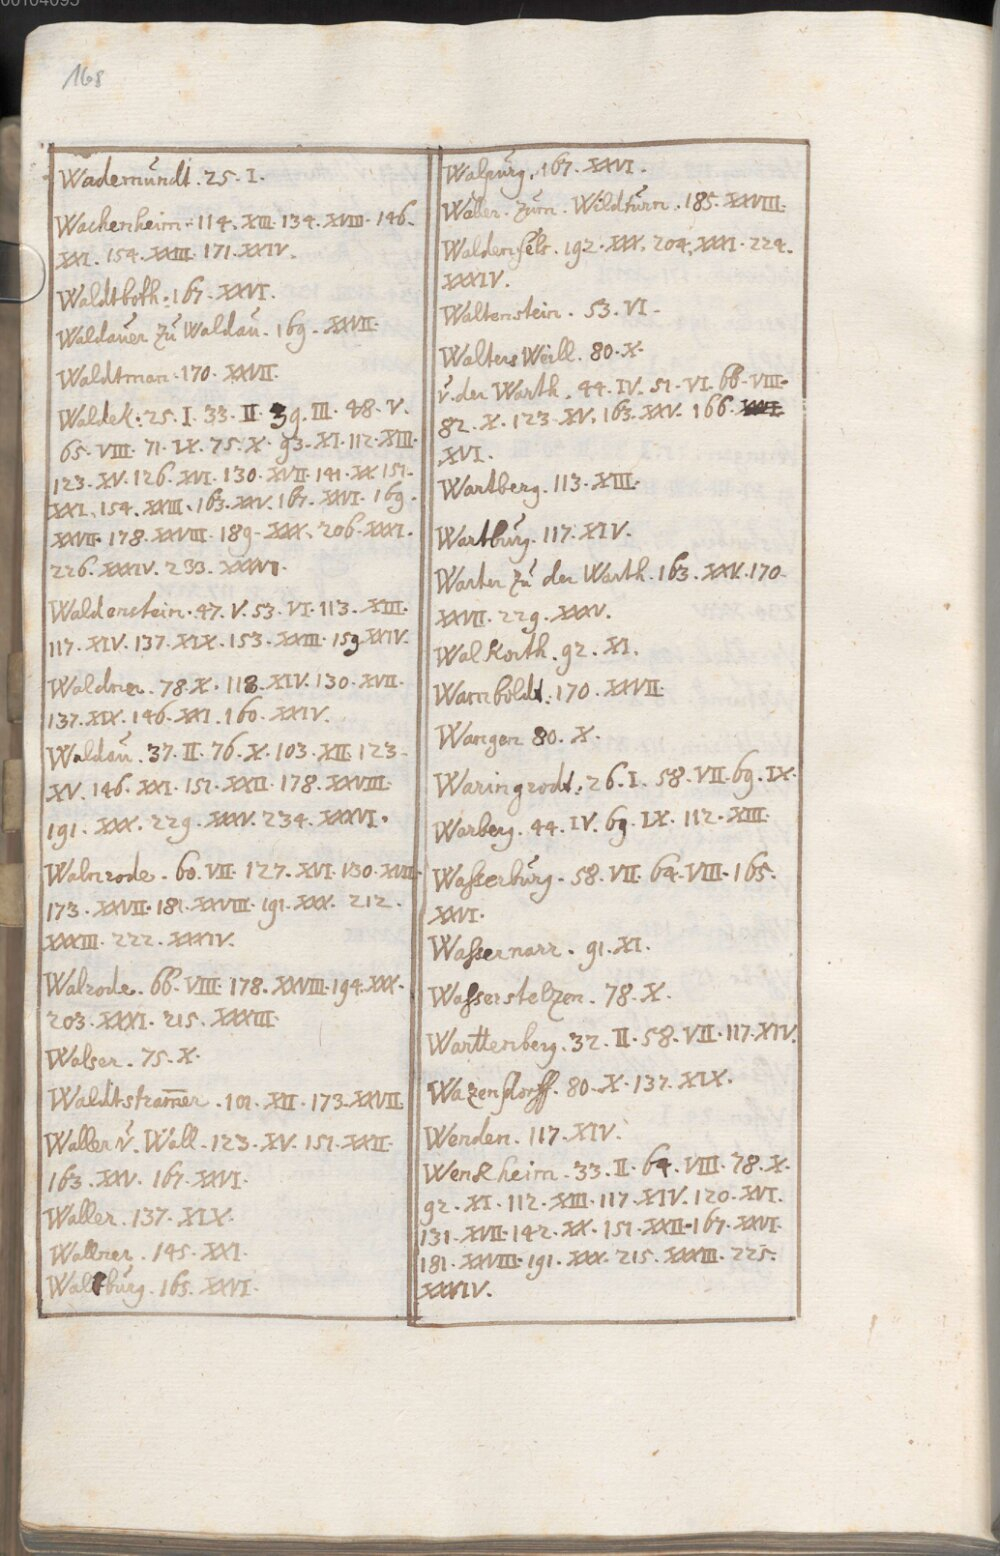 00104095
168
Wademundt. 25. I.
Wachenheim. 114. XIII. 134. XVIII. 146.
XXI. 154. XXIII. 171. XXIV.
Waldtboth. 167. XXVI.
Waldauer zů Waldau. 169. XXVII.
Waldtman. 170. XXVII.
Waldek. 25. I. 33. II. 39. III. 48. V.
65. VIII. 71. IX. 75. X. 93. XI. 112. XIII.
123. XV. 126. XVI. 130. XVII. 141. XX. 151.
XXI. 154. XXIII. 163. XXV. 167. XXVI. 169.
XXVII. 178. XXVIII. 189. XXX. 206. XXXI.
226. XXXIV. 233. XXXVI.
Walderstein. 47. V. 53. VI. 113. XIII.
117. XIV. 137. XIX. 153. XXIII. 159 XXIV.
Waldner. 78. X. 118. XIV. 130. XVII.
137. XIX. 146. XXI. 160. XXIV.
Waldau. 37. II. 76. X. 103. XII. 123.
XV. 146. XXI. 151. XXII. 178. XXVIII.
191. XXX. 229. XXXV. 234. XXXVI.
Walnrode. 60. VII. 127. XVI. 130. XVII.
173. XXVII. 181. XXVIII. 191. XXX. 212.
XXXIII. 222. XXXIV.
Walrode. 66. VIII. 178. XXVIII. 194. XXX.
203. XXXI. 215. XXXIII.
Walser. 75. X.
Waldtstram̄er. 101. XII. 173. XXVII.
Waller v. Wall. 123. XV. 151. XXII.
163. XXV. 167. XXVI.
Waller. 137. XIX.
Wallner. 145. XXI.
Waltburg. 165. XXVI.
Walpurg. 167. XXVI.
Waller. zum. Wildturn. 185. XXVIII.
Waldenfels. 192. XXX. 204. XXXI. 224.
XXXIV.
Waltenstein. 53. VI.
Walters Weill. 80. X.
v. der Warth. 44. IV. 51. VI. 66. VIII.
82. X. 123. XV. 163. XXV. 166.
XVI.
Wartberg. 113. XIII.
Wartburg. 117. XIV.
Warter zů der Warth. 163. XXV. 170.
XXVII. 229. XXXV.
Walkorth. 92. XI.
Wamboldt. 170. XXVII.
Wangen 80. X.
Waringrodt. 26. I. 58. VII. 69. IX.
Warberg. 44. IV. 69. IX. 112. XIII.
Waßerburg. 58. VII. 64. VIII. 165.
XXVI.
Waßernarr. 91. XI.
Waßerstelzen. 78. X.
Warttenberg. 32. II. 58. VII. 117. XIV.
Wazendorff. 80. X. 137. XIX.
Wenden. 117. XIV.
Wenkheim. 33. II. 64. VIII. 78. X.
92. XI. 112. XIII. 117. XIV. 120. XVI.
131. XVII. 142. XX. 151. XXII. 167. XXVI.
181. XXVIII. 191. XXX. 215. XXXIII. 225.
XXXIV.